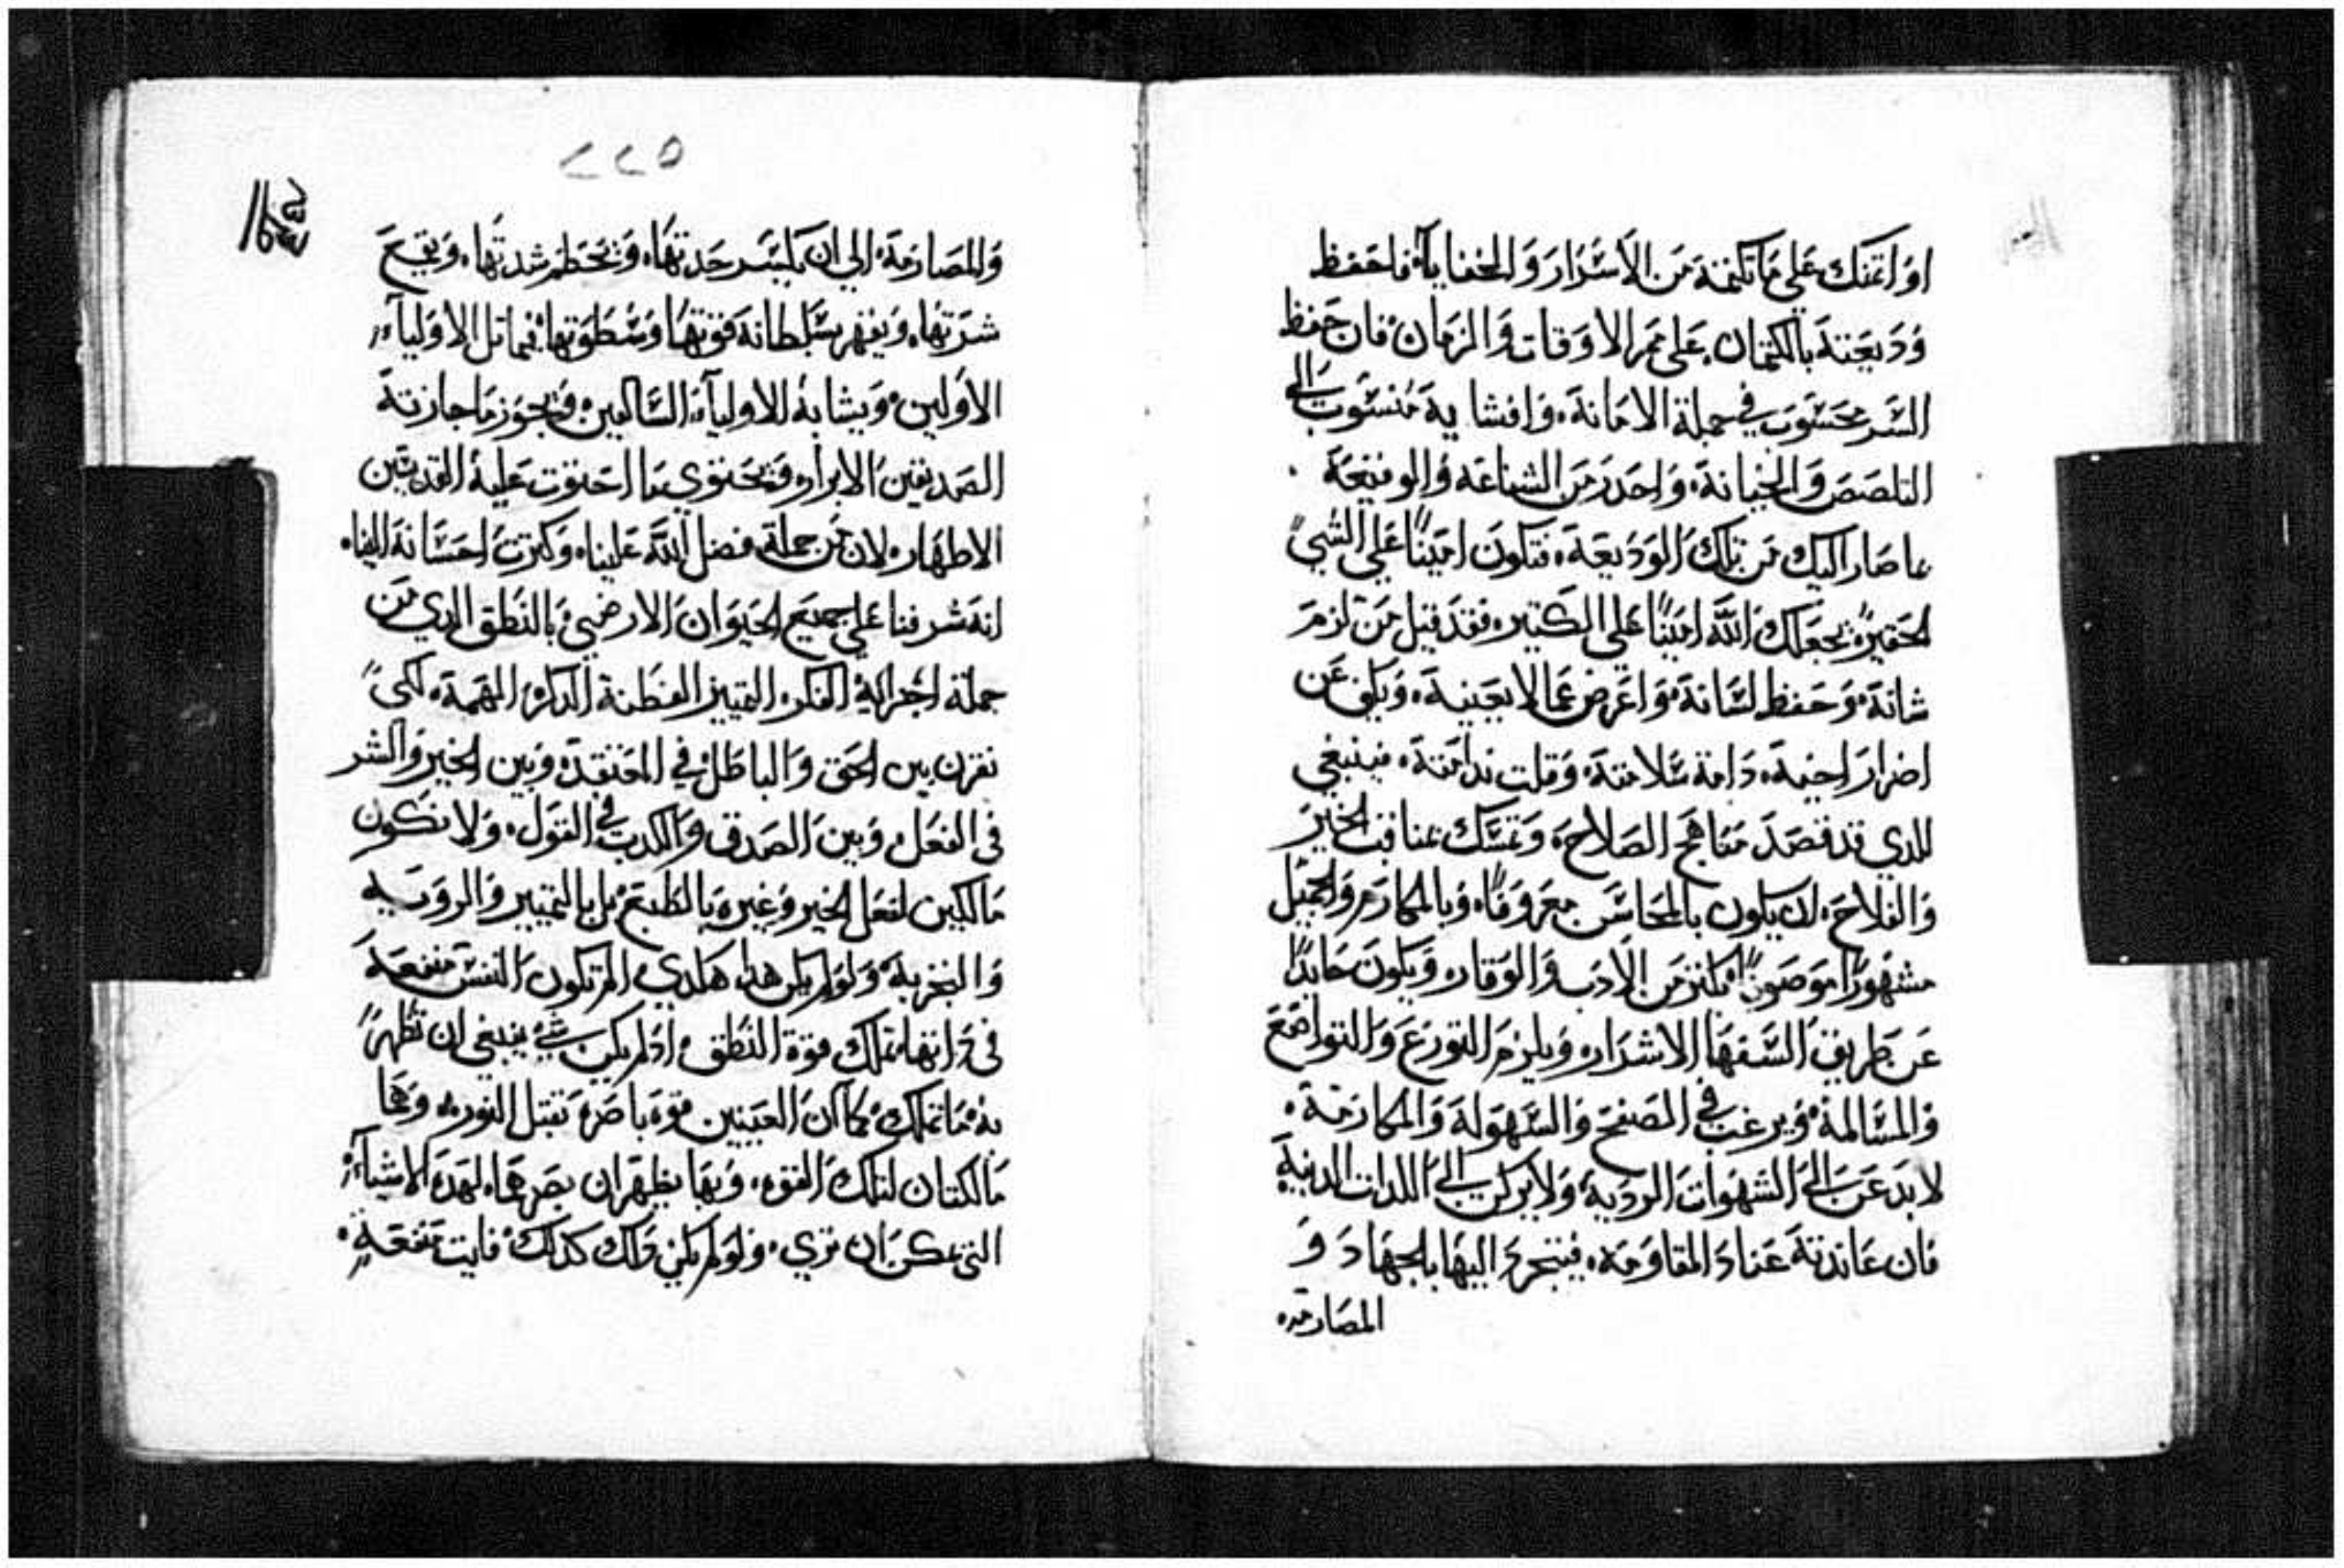 او اتمنك علي ما تكتمة من الاسرار والخفايا، فاحفظ
وديعتة بالكتمان، علي ممر الاوقات والزمان، فان حفظ
السر محسوب في جملة الامانة، وافشاية منسوب الي
التلصص والخيانة، واحدر من الشناعة والوقيحة.
ما صار اليك من تلك الوديعة، فتكون امينًا علي الشي
الحقير، يجعلك الله امينًا علي الكتير، فقد قيل من لزم
شانة، وحفظ لسانة، واعرض عما لا يعنية، وبكف عن
اضرار اخية، دامة سلامتة، وقلت ندامتة، فينبغي
للدي قد قصد مناهج الصلاح، وتمسك بمناقب الخير
والفلاح، ان يكون بالمحاسن معروفًا، وبالمكارم والجميل
مشهورًا موصوفًا، مكنز من الادب والوقار، ويكون حايدًا
عن طريق السفها الاشرار، ويلزم التورع والتواضع
والمسالمة، ويرغب في الصفح والسهولة والمكارمة.
لا يدعن الي الشهوات الردية، ولا يركن الي اللدات الدنية
فان عاندتة عناد المقاومة، فيتجرد اليها بالجهاد و
المصارمة
٢٢٥
والمصارمة، الي ان يكسر حدتها، ويحطم شدتها، ويقمع
شرتها، ويقهر بسلطانة قوتها وسطوتها، فيماتل الاولياء
الاولين، ويشابة للاولياء السالكين، ويجوز ما جازتة
الصديقين الابرار، ويحتوي ما احتوت علية القديسين
الاطهار، لان من جملة فضل الله علينا، وكترت احسانة الينا،
انة شرفنا علي جميع الحيوان الارضي، بالنطق الدي من
جملة اجزاية الفكر، التمييز الفطنة الدكر، الفهمة، لكي
نفرق بين الحق والباطل، في المعتقد، وبين الخير والشر
في الفعل، وبين الصدق والكدب في القول، ولا نكون
مالكين لفعل الخير وغيره بالطبع، بل بالتمييز والروية
والتجربة، ولو لم يكن هدا هكدي، لم تكون النفس منفعة
في داتها، تملك قوة النطق، اد لم يكن شي ينبغي ان تظهر
بة ما تملك، كما ان العينين قوة باصرة تقبل النور، وهما
مالكتان لتلك القوة، وبها يظهران بصرهما لهدة الاشياء
التي يمكن ان تري، ولو لم يكن دلك كدلك، فايت منفعة.